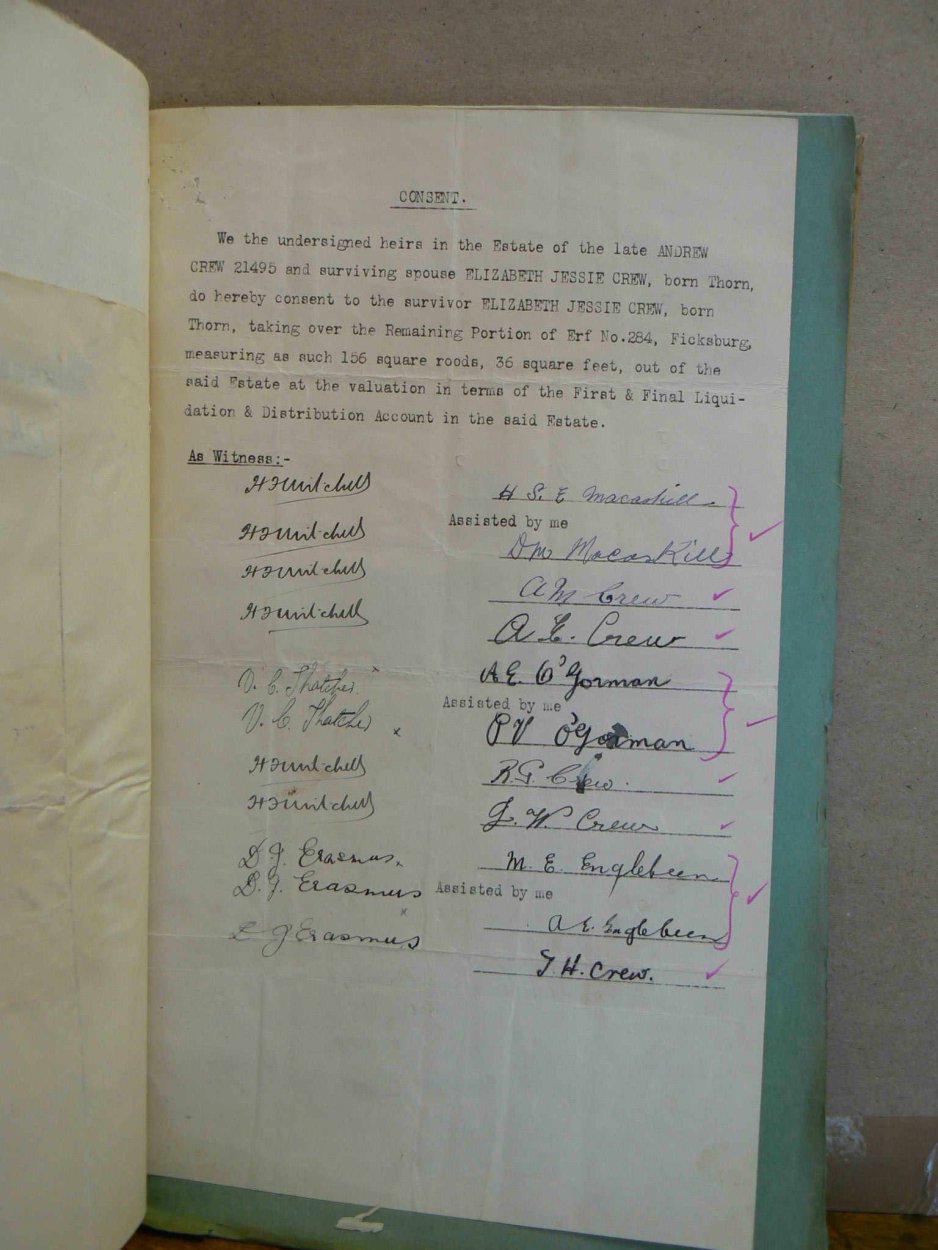 CONSENT.
We the undersigned heirs in the Estate of the late ANDREW
CREW 21495 and surviving spouse ELIZABETH JESSIE CREW, born Thorn,
do hereby consent to the survivor ELIZABETH JESSIE CREW, born
Thorn, taking over the Remaining Portion of Erf No.284, Ficksburg,
measuring as such 156 square roods, 36 square feet, out of the
said Estate at the valuation in terms of the First & Final Liqui-
dation & Distribution Account in the said Estate.
As Witness:-
H F Mitchell
H S. E Macaskill
Assisted by me
H F Mitchell
D M MacasKill
H F Mitchell
A M Crew
H F Mitchell
A. E. Crew
V. C. Thatcher.
A E. O'Gorman
Assisted by me
V. C. Thatcher
P V O'Gorman
H F Mitchell
R G Crew.
H F Mitchell
G. W. Crew
D. J. Erasmus.
M. E. Englebeen
D. J. Erasmus
Assisted by me
D J Erasmus
A E. Englebeen
T. H. Crew.